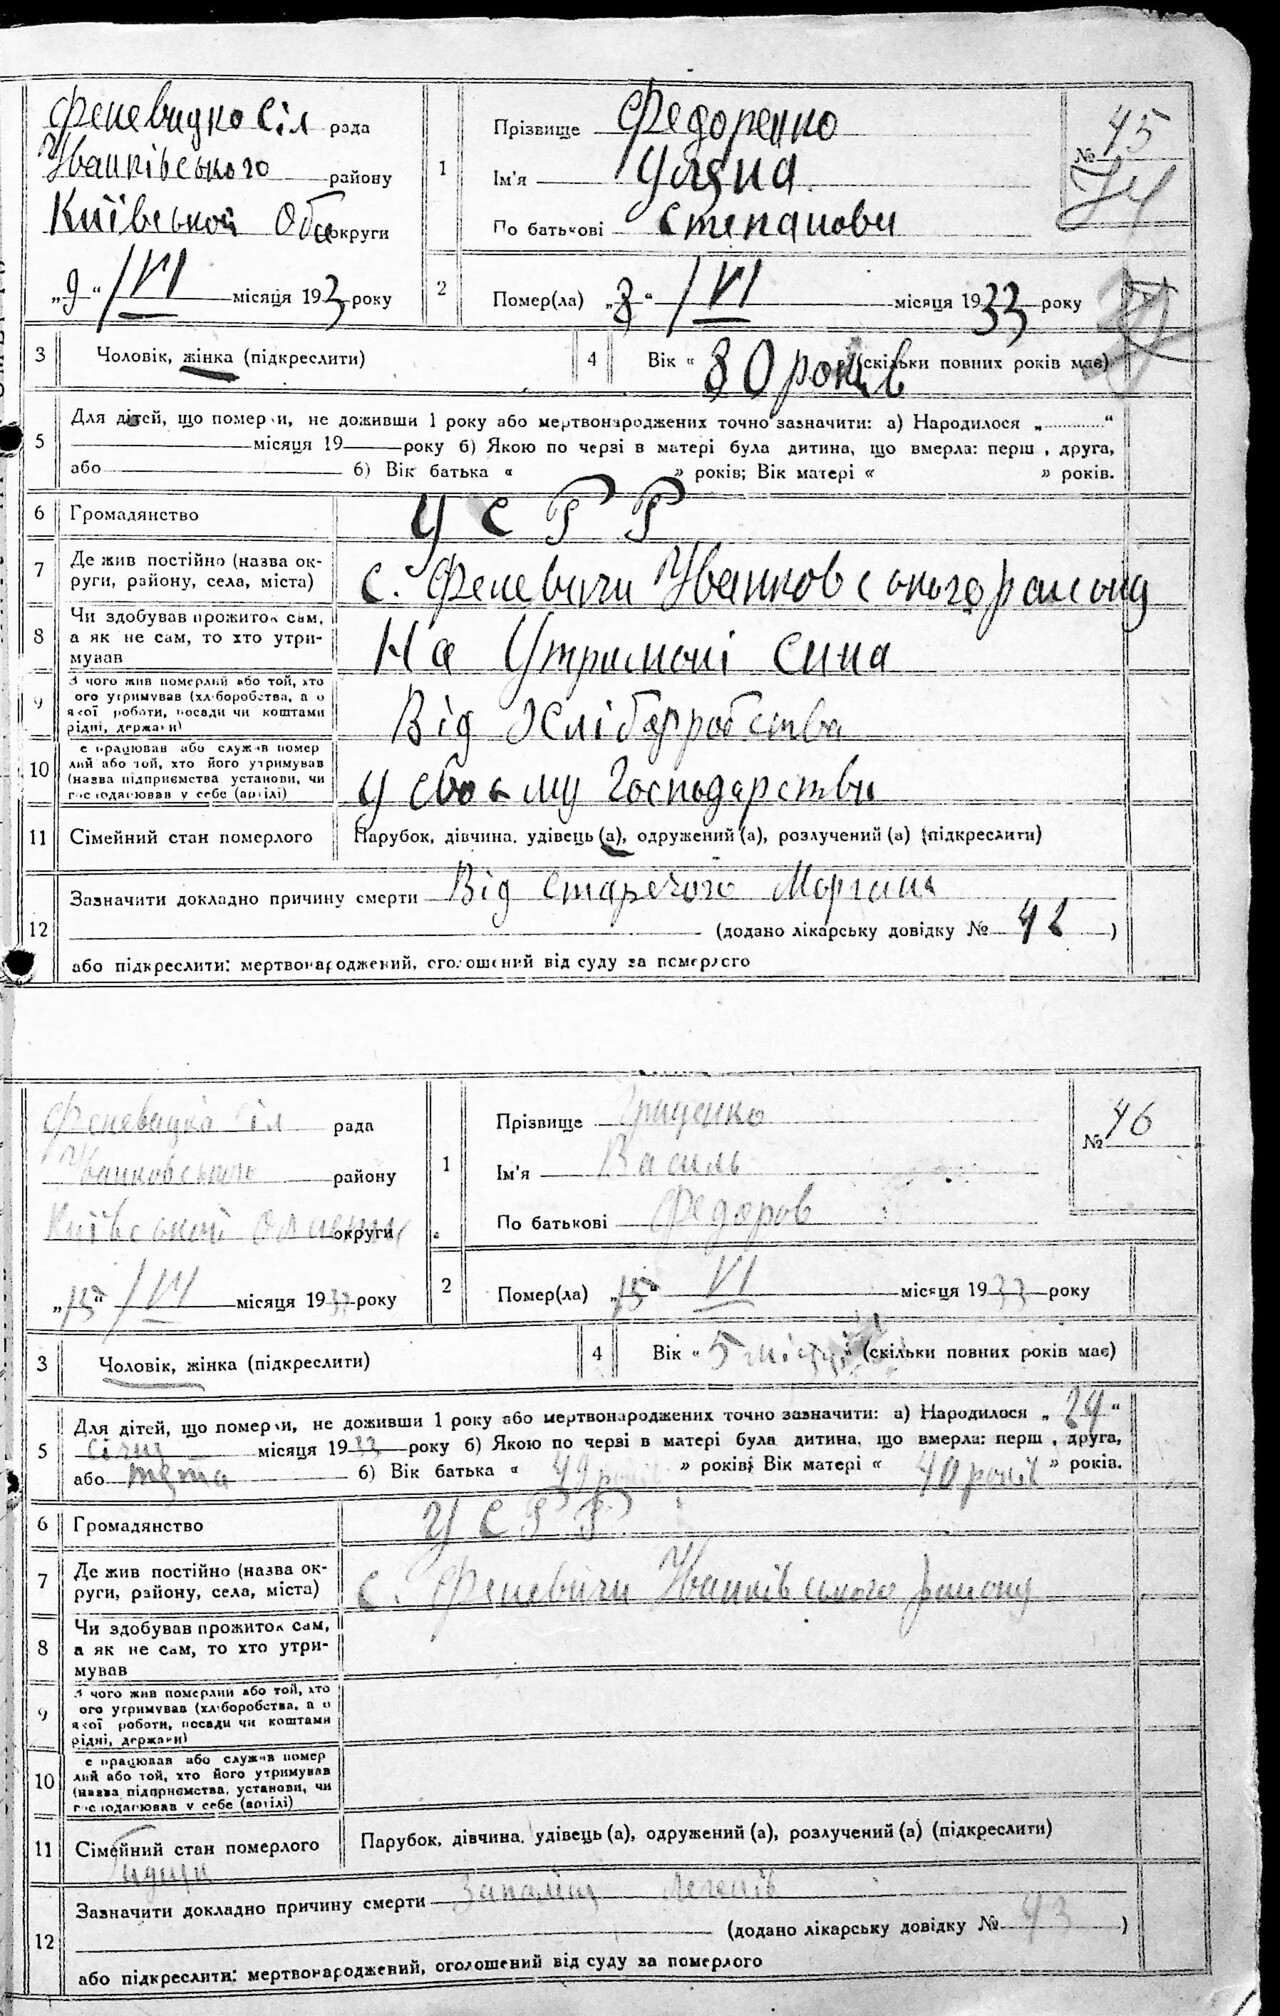 Феневицко Сіл рада
Іванківського району
Київської Обл округи
„9“ /VI місяця 1933 року
1
Прізвище Федоренко
Ім'я Уляна
По батькові Степанови
№ 45
74
2
Помер(ла) „8“ /VI місяця 1933 року
3 Чоловік, жінка (підкреслити)
4 Вік « 80 років (скільки повних років має)
5 Для дітей, що померли, не доживши 1 року або мертвонароджених точно зазначити: а) Народилося „ “
місяця 19 року б) Якою по черзі в матері була дитина, що вмерла: перш , друга,
або б) Вік батька « » років; Вік матері « » років.
6 Громадянство УСРР
7 Де жив постійно (назва ок-
руги, району, села, міста) с. Феневичи Іванковського району
8 Чи здобував прожиток сам,
а як не сам, то хто утри-
мував На Утримоні сина
9 З чого жив померлий або той, хто
ого утримував (хліборобства, а о
якої роботи, посади чи коштами
рідні, держави) Від Хліборобства
10 е працював або служив помер
лий або той, хто його утримував
(назва підприємства установи, чи
господарював у себе (артілі) У своєму Господарстви
11 Сімейний стан померлого Парубок, дівчина, удівець (а), одружений (а), розлучений (а) (підкреслити)
12 Зазначити докладно причину смерти Від Старечого
(додано лікарську довідку № 42 )
або підкреслити: мертвонароджений, оголошений від суду за померлого
Феневицко Сіл рада
Іванковського району
Київської Области округи
„15“ /VI місяця 1933 року
1
Прізвище Гриценко
Ім'я Василь
По батькові Федоров
№ 46
2
Помер(ла) „15“ VI місяця 1933 року
3 Чоловік, жінка (підкреслити)
4 Вік « 5 місяців (скільки повних років має)
5 Для дітей, що померли, не доживши 1 року або мертвонароджених точно зазначити: а) Народилося „ 24 “
Січня місяця 1933 року б) Якою по черзі в матері була дитина, що вмерла: перш , друга,
або б) Вік батька « 49 років » років; Вік матері « 40 років » років.
6 Громадянство УСРР
7 Де жив постійно (назва ок-
руги, району, села, міста) с. Феневичи Іванківського району
8 Чи здобував прожиток сам,
а як не сам, то хто утри-
мував
9 З чого жив померлий або той, хто
ого утримував (хліборобства, а о
якої роботи, посади чи коштами
рідні, держави)
10 е працював або служив помер
лий або той, хто його утримував
(назва підприємства, установи, чи
господарював у себе (артілі)
11 Сімейний стан померлого Парубок, дівчина, удівець (а), одружений (а), розлучений (а) (підкреслити)
12 Зазначити докладно причину смерти Запаліня Легенів
(додано лікарську довідку № 43 )
або підкреслити: мертвонароджений, оголошений від суду за померлого